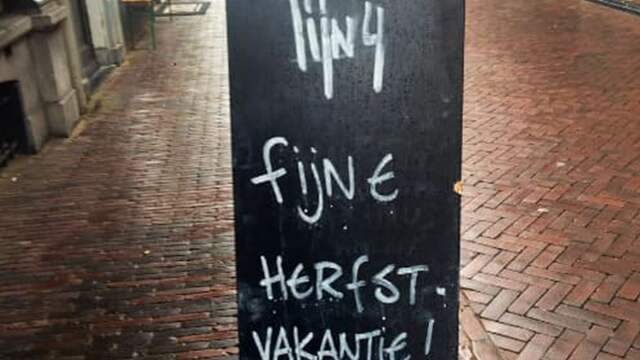 lijn4
fijne
HERfST.
VAKANTIE!